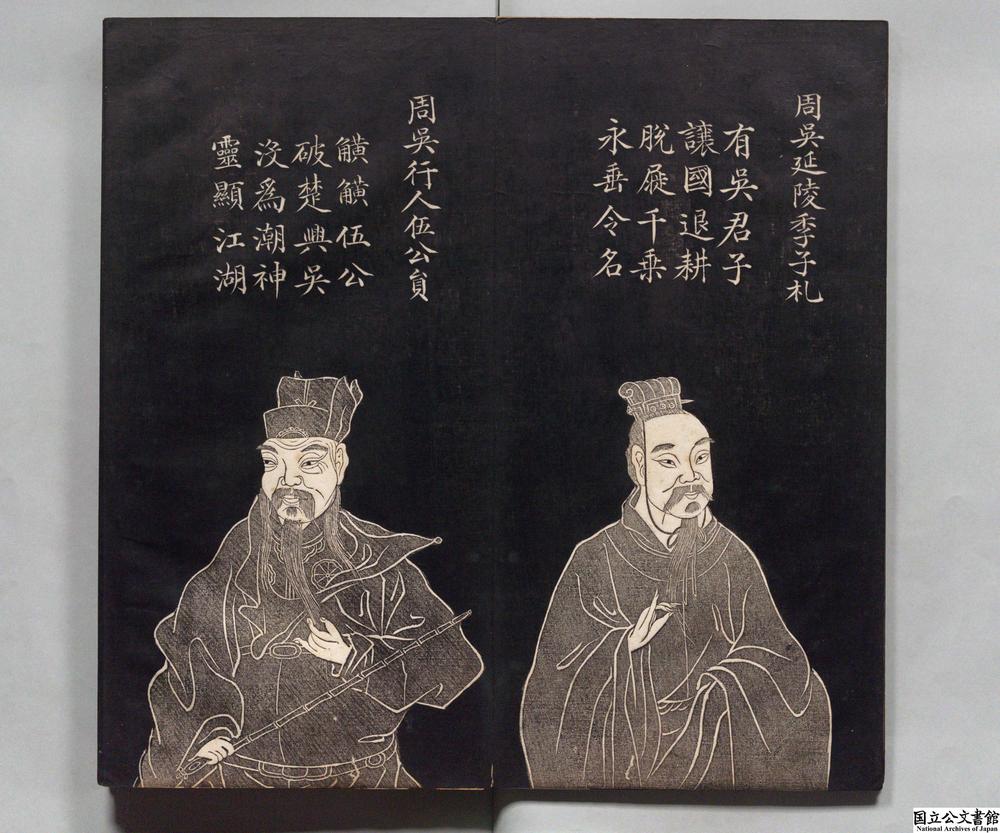 周吳延陵季子札
有吳君子
讓國退耕
脫屣千乗
永垂令名
周吳行人伍公員
觥觥伍公
破楚興吳
沒為潮神
靈顯江湖
国立公文書館
National Archives of Japan